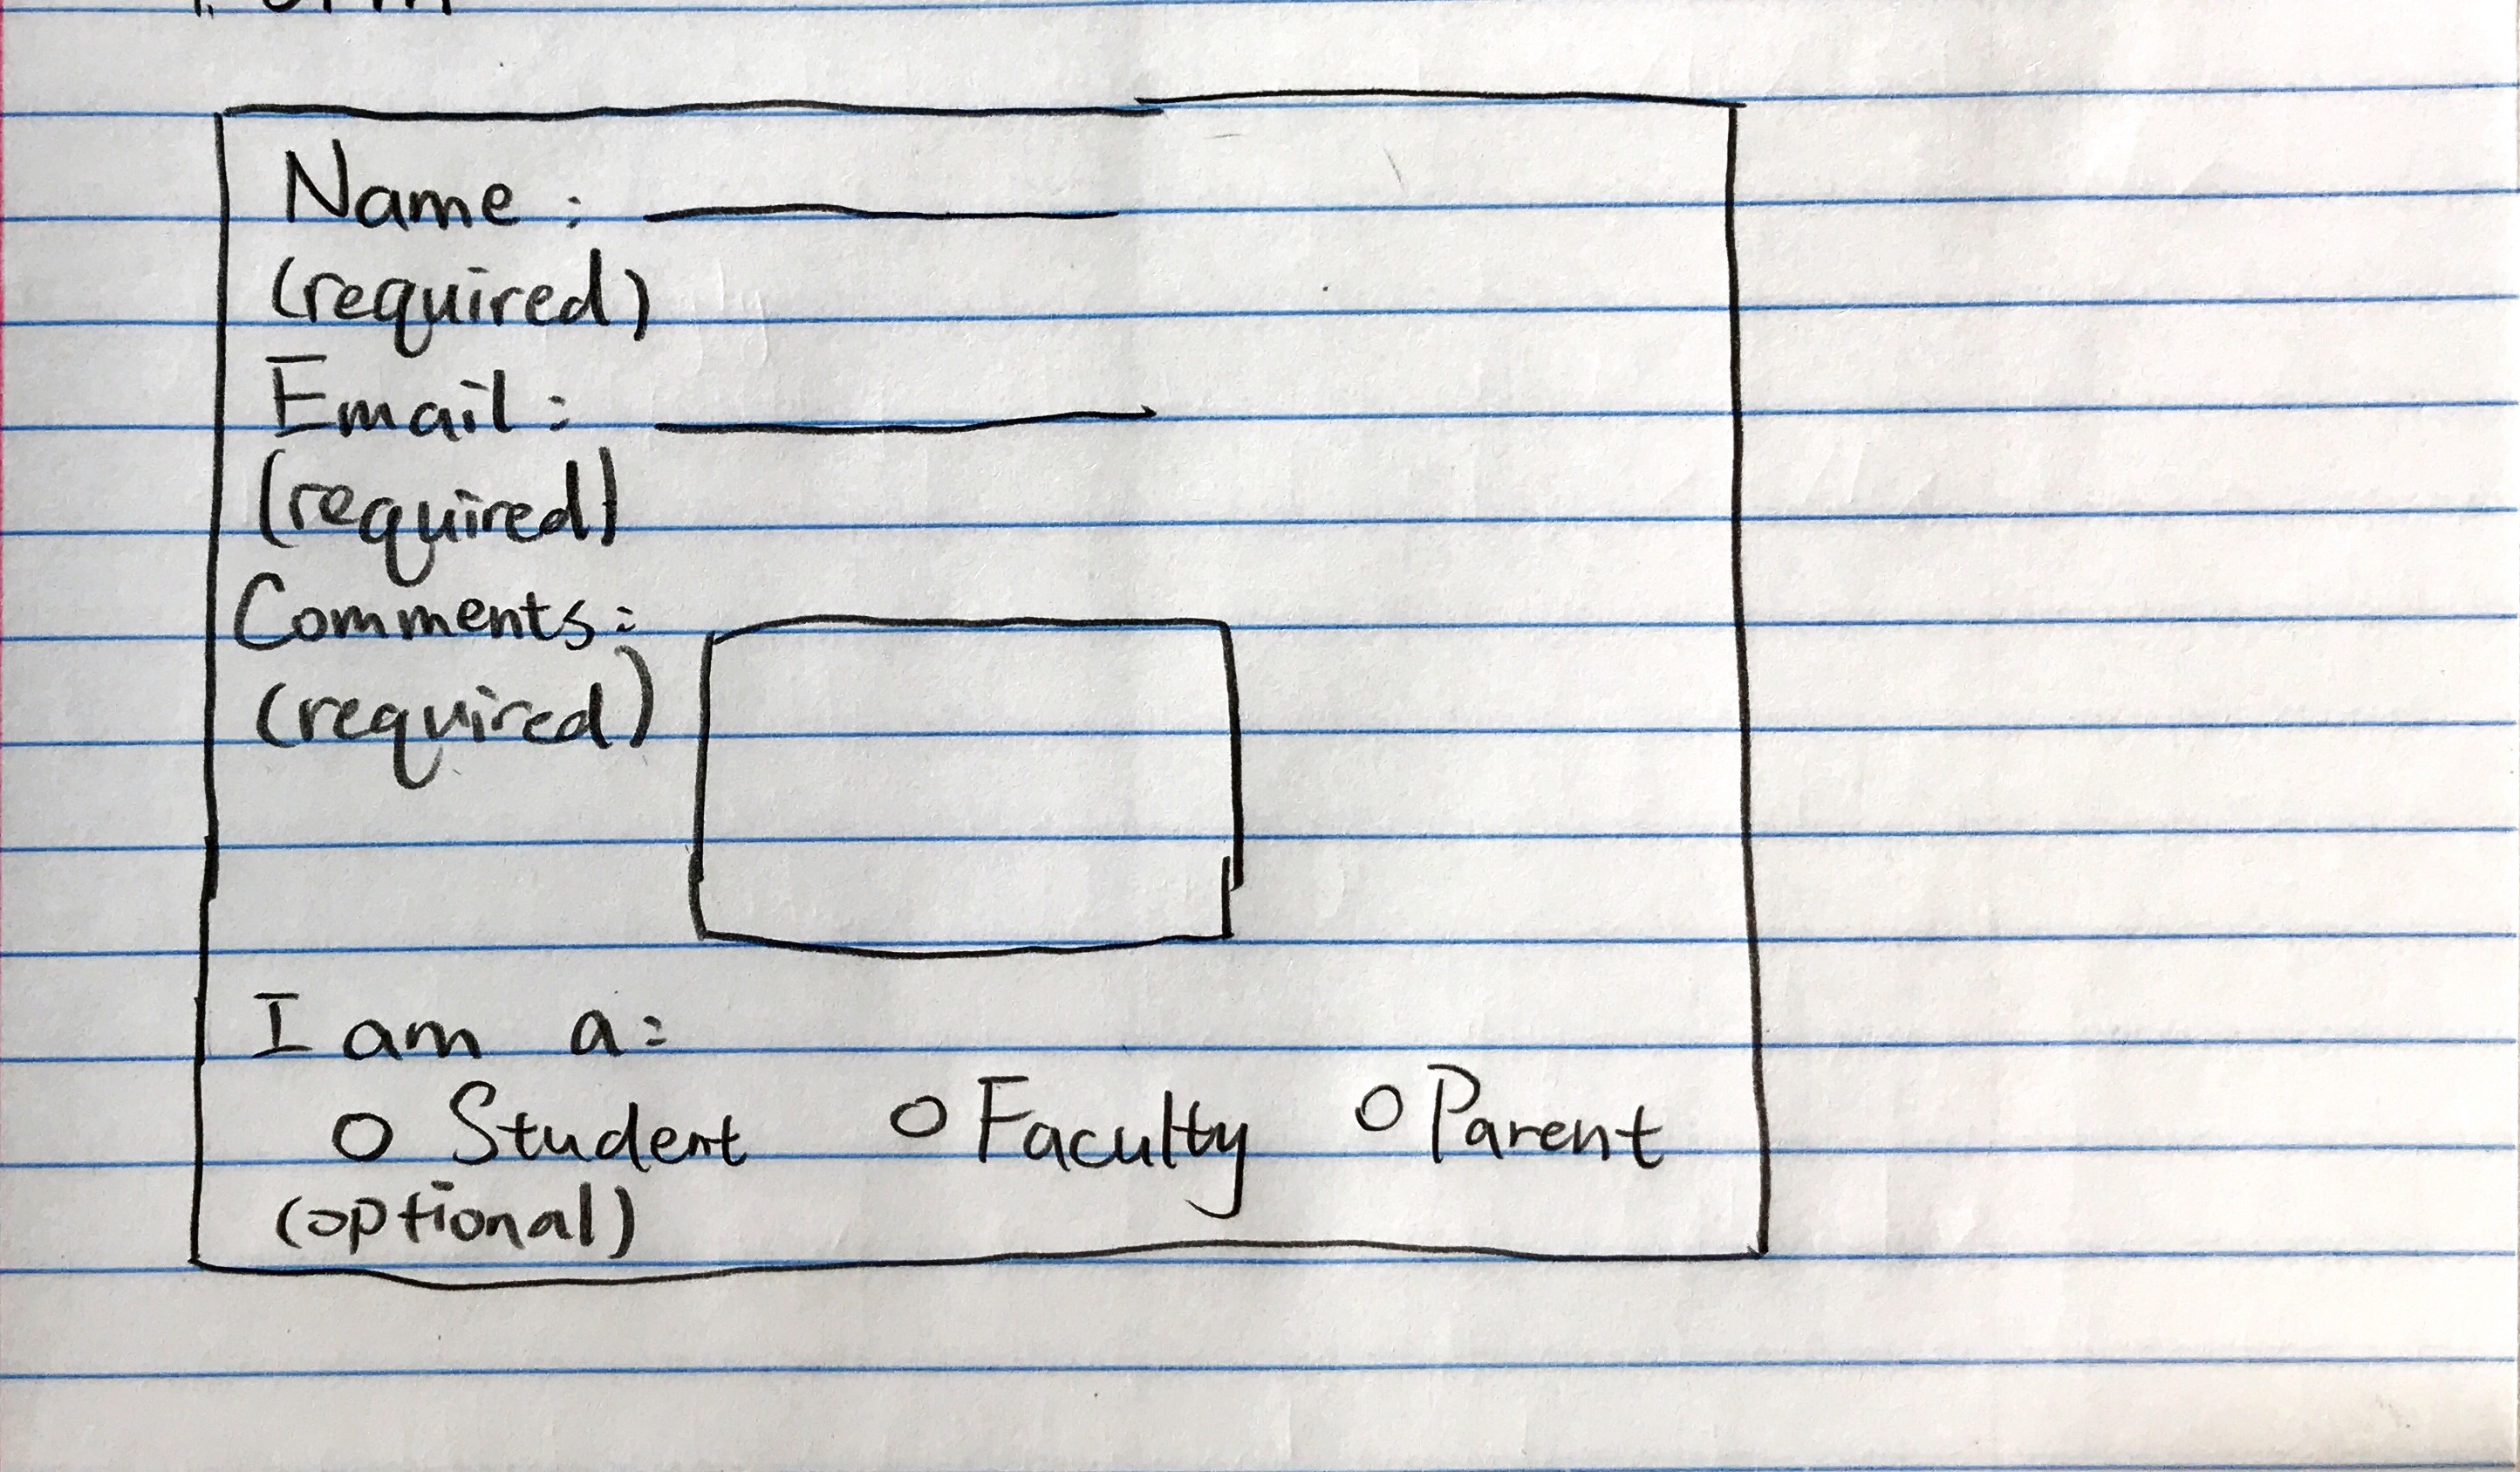 Name:
(required)
Email:
(required)
Comments:
(required)
I am a:
O Student O Faculty O Parent
(optional)